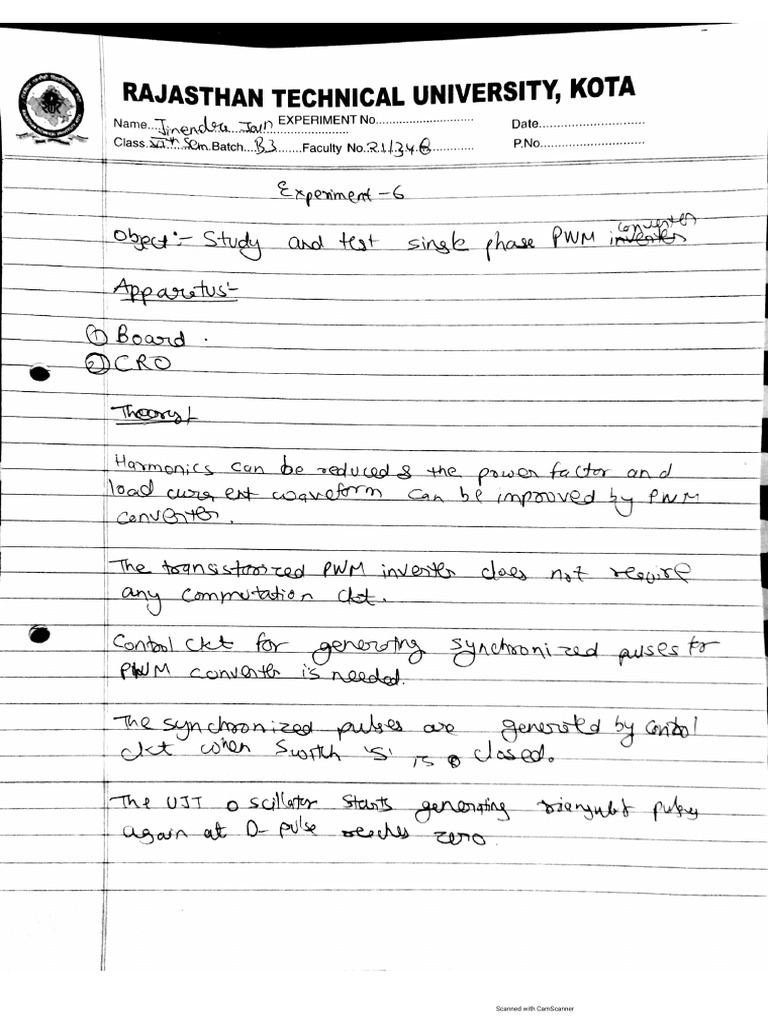 RAJASTHAN TECHNICAL UNIVERSITY, KOTA
Name...Jinendra Jain EXPERIMENT No............................. Date..............................
Class.VIth Sem.Batch....B3.......Faculty No.21/346............. P.No.............................
Experiment-6
converter
Object:- Study and test single phase PWM inverter
Apparetus:-
① Board .
② CRO
Theory!
Harmonics can be reduced & the power factor and
load current waveform can be improved by PWM
converter.
The transistorized PWM inverter does not require
any commutation ckt.
Control ckt for generating synchronized puses for
PWM converter is needed.
The synchronized pulses are generated by control
ckt when Switch 'S' is closed.
The UJT oscillator starts generating pulses
again at D- pulse reaches zero.
Scanned with CamScanner